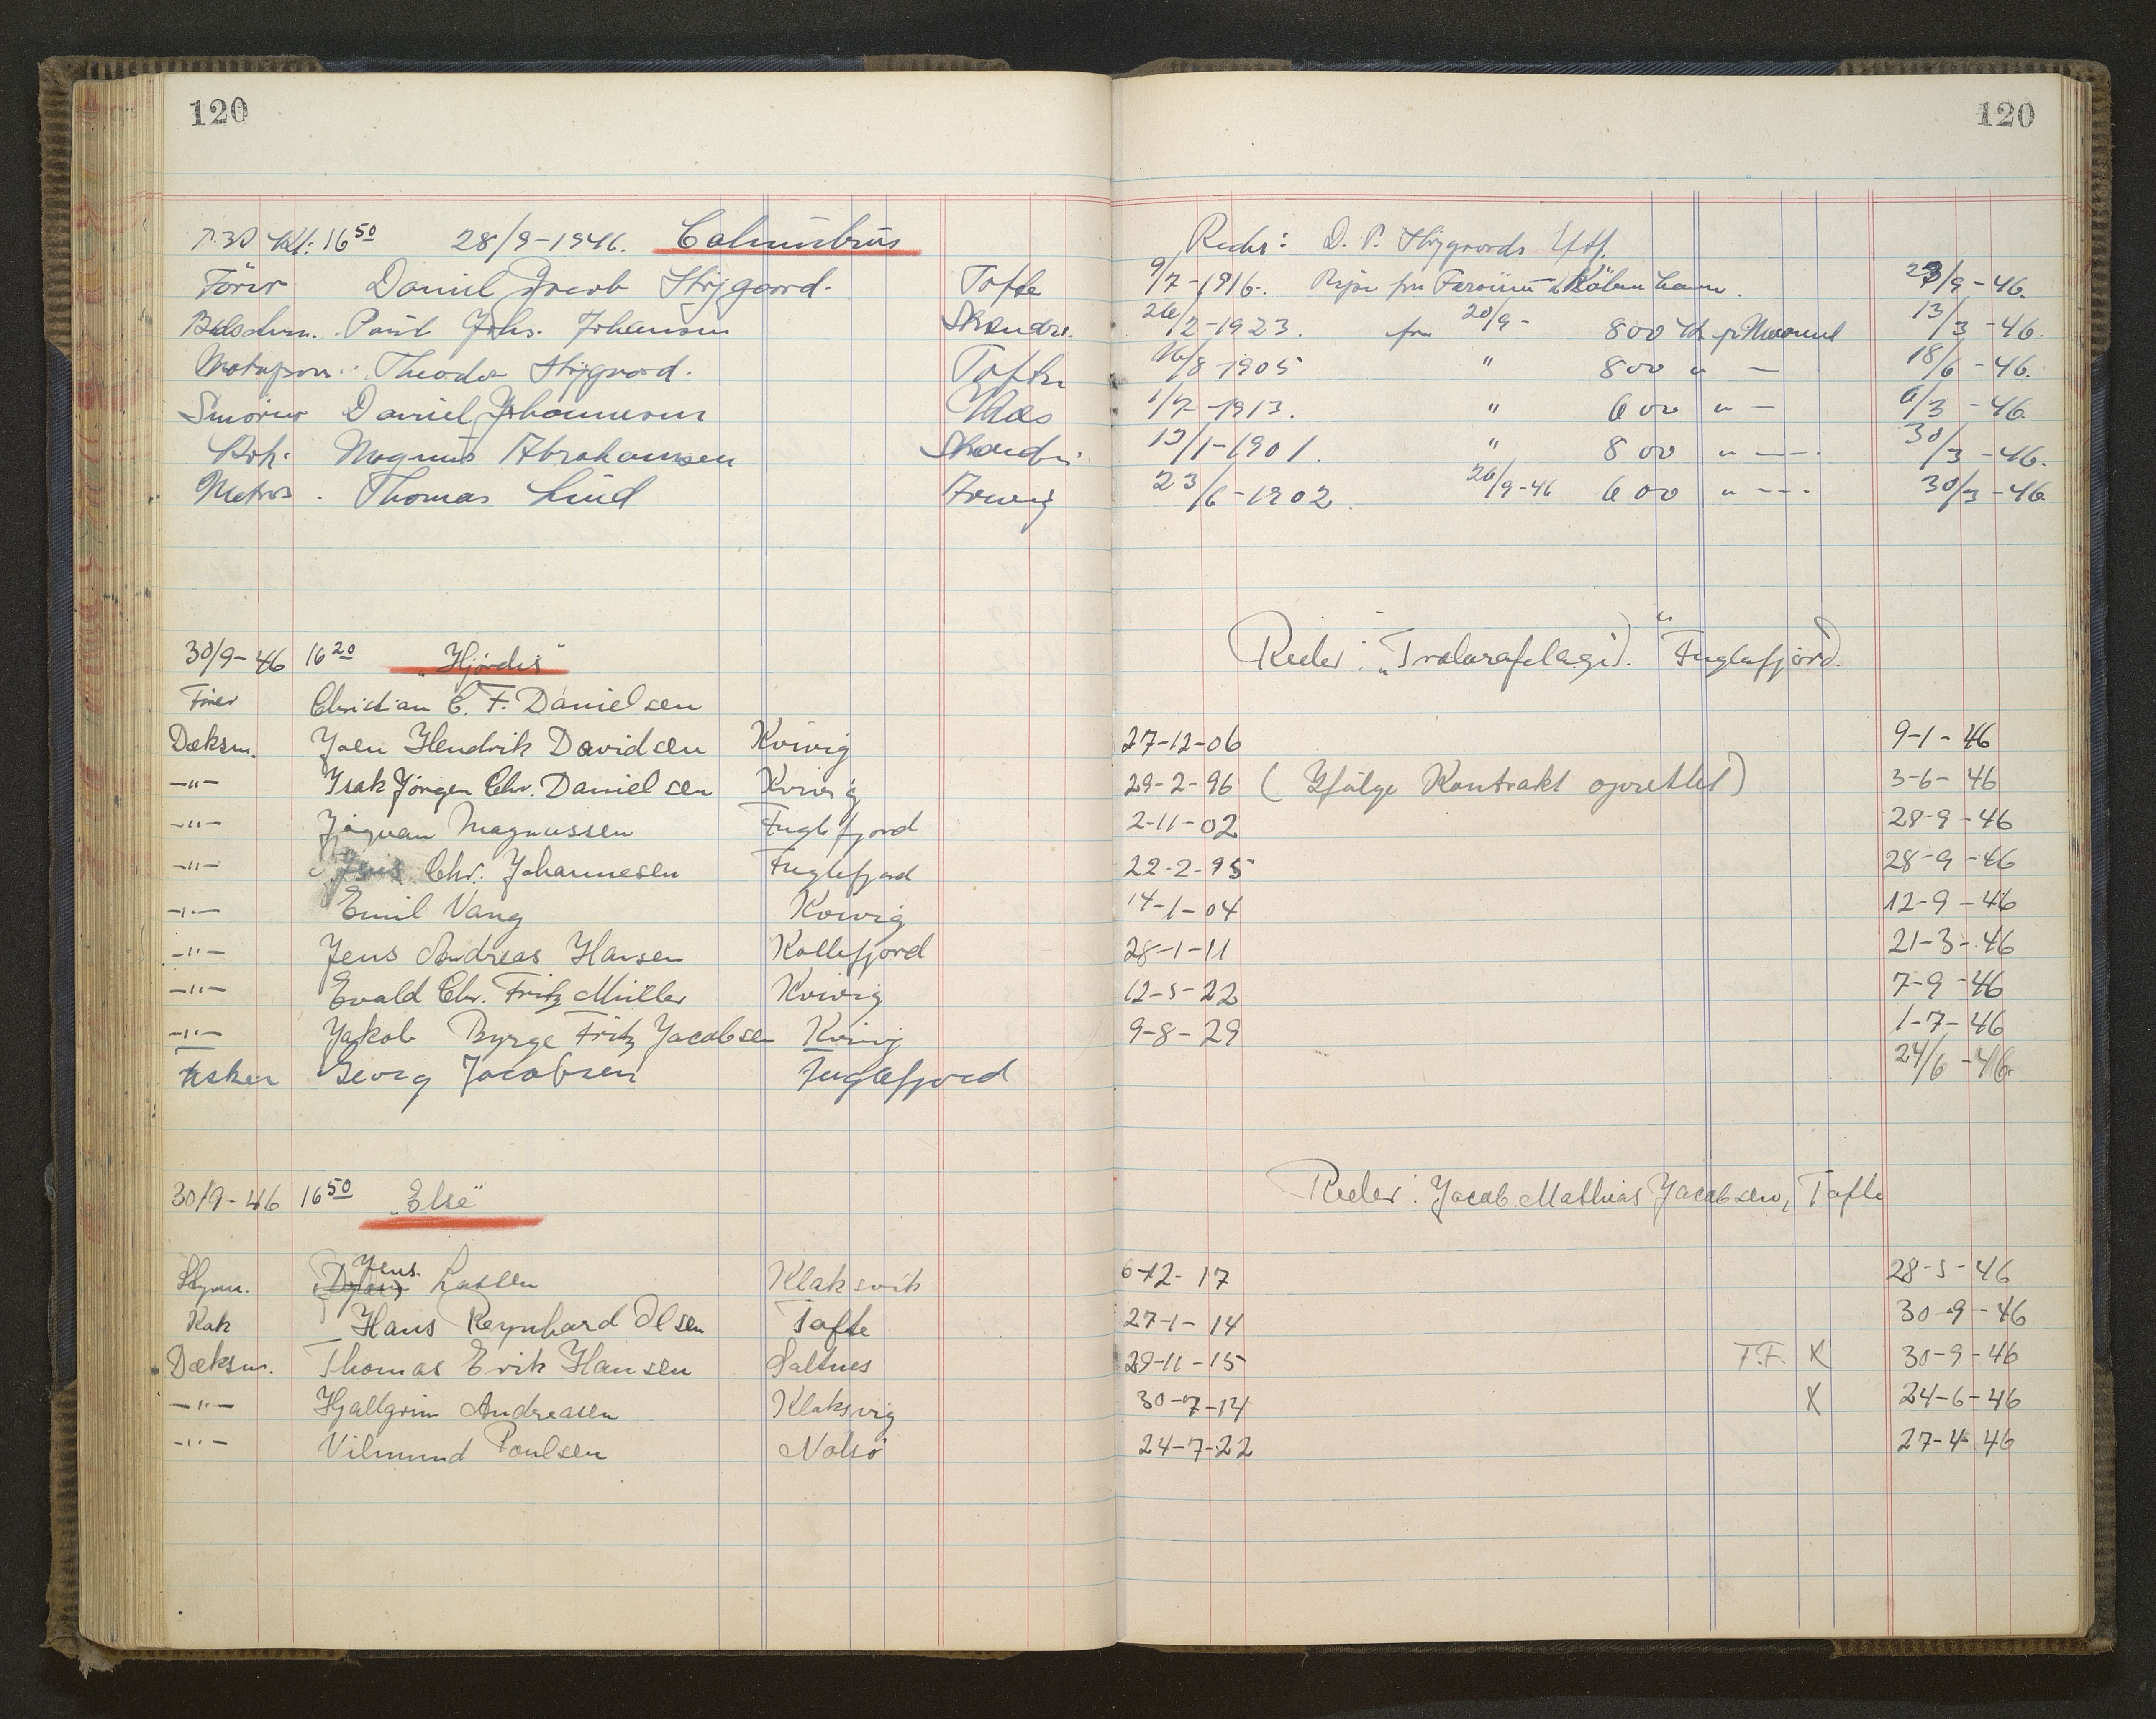 120
120
Kl: 16 50 28/9-1946. Columbus Reder: D. P. Höjgaards Eftf.
Förer Daniel Jacob Höjgaard. Tofte 9/7-1916. Rejse fra Færöerne Köbenhavn. 23/9-46.
Poul Johs. Johansen 26/2-1923. fra 20/9- 800 Kr p. Maaned 13/3-46.
Theodor Höjgaard. Tofte 16/8 1905 " 800 " — 18/6-46.
Smörer Daniel Johannesen 1/7-1913. " 600 " — 6/3-46.
Kok. Magnus Abrahamsen 13/1-1901. " 800 " — 30/3-46.
Matros. Thomas Lund 23/6-1902. 26/9-46 600 " --- 30/3-46
30/9-46 16 20 "Hjördis" Reder: "Trolarafelagið" Fuglefjörd.
Förer Christian C. F. Danielsen
Dæksm. Joen Hendrik Davidsen Kvivig 27-12-06 9-1-46
-"- Isak Jörgen Chr. Danielsen Kvivig 29-2-96 (Ifölge Kontrakt oprettet) 3-6-46
-"- Magnussen Fuglefjord 2-11-02 28-9-46
-"- Jens Chr. Johannesen Fuglefjord 22-2-95 28-9-46
-"- Emil Vang Kvivig 14-1-04 12-9-46
-"- Jens Andreas Hansen Kollefjord 28-1-11 21-3-46
-"- Evald Chr. Fritz Müller Kvivig 12-5-22 7-9-46
-"- Jakob Byrge Fritz Jacobsen Kvivig 9-8-29 1-7-46
Fisker Georg Jacobsen Fuglefjord 24/6-46.
30/9-46 16 50 "Else" Reder: Jacob Mathias Jacobsen, Tofte
Styrm. Jens Larsen Klaksvik 6-12-17 28-5-46
Kok Hans Reynhard Olsen Tofte 27-1-14 30-9-46
Dæksm. Thomas Erik Hansen Saltnes 29-11-15 T.F. X 30-9-46
-"- Hjallgrim Andreasen Klaksvig 30-7-14 X 24-6-46
-"- Vilmund Poulsen Nolsö 24-7-22 27-4-46